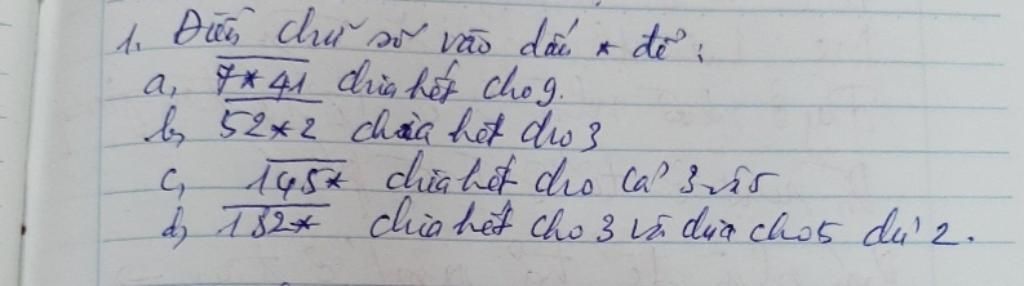 1. Điền chữ số vào dấu * để:
a, 7*41 chia hết cho 9.
b, 52*2 chia hết cho 3
c, 145* chia hết cho cả 3 và 5
d, 132* chia hết cho 3 và chia cho 5 dư 2.